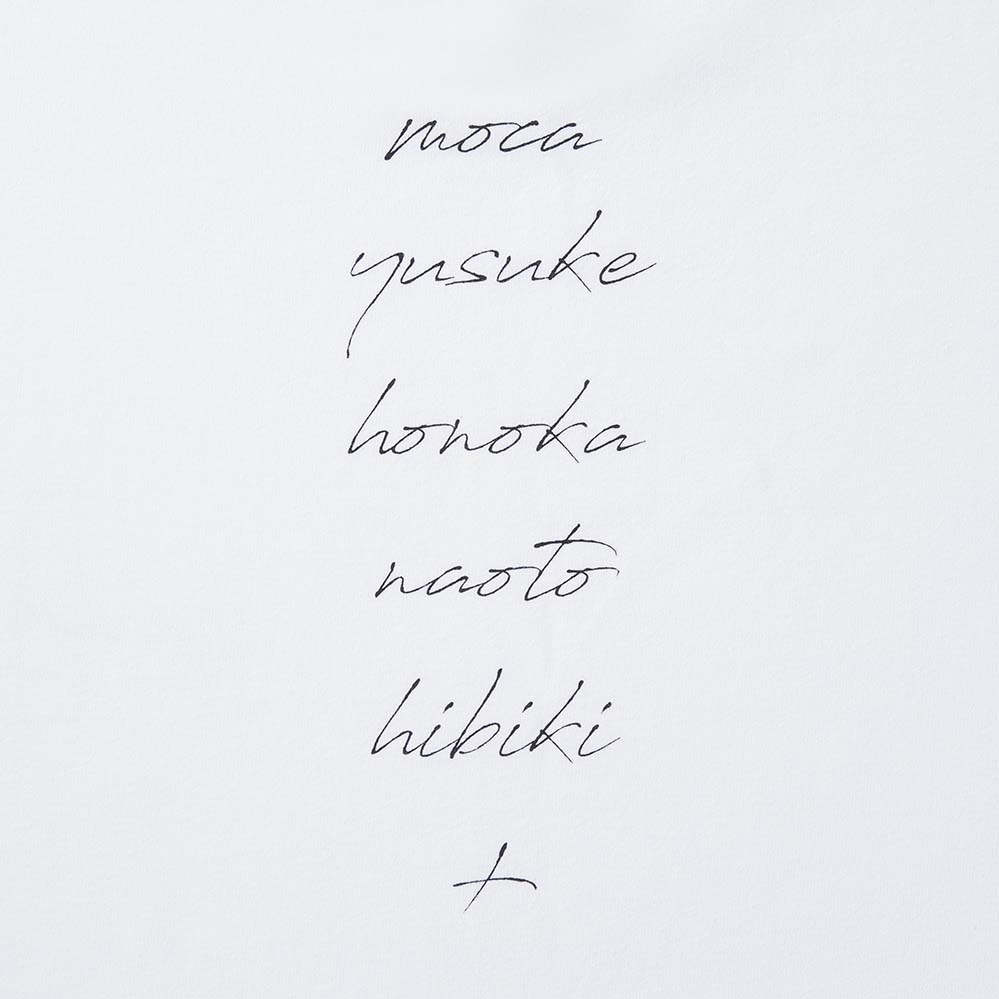 moca
yusuke
honoka
naoto
hibiki
+